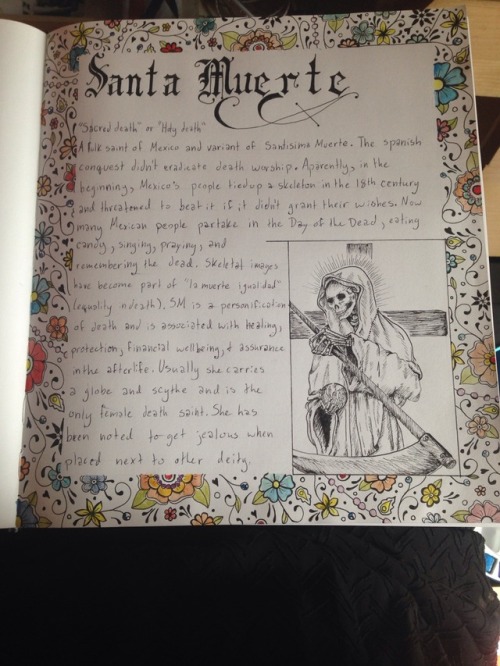 Santa Muerte
"Sacred death" or "Holy death"
A folk saint of Mexico and variant of Sandisima Muerte. The spanish
conquest didn't eradicate death worship. Aparently, in the
beginning, Mexico's people tied up a skeleton in the 18th century
and threatened to beat it if it didn't grant their wishes. Now
many Mexican people partake in the Day of the Dead, eating
candy, singing, praying, and
remembering the dead. Skeletal images
have become part of "la muerte igualdad"
(equality in death). SM is a personification
of death and is associated with healing,
protection, financial wellbeing, & assurance
in the afterlife. Usually she carries
a globe and scythe and is the
only female death saint. She has
been noted to get jealous when
placed next to other deity.